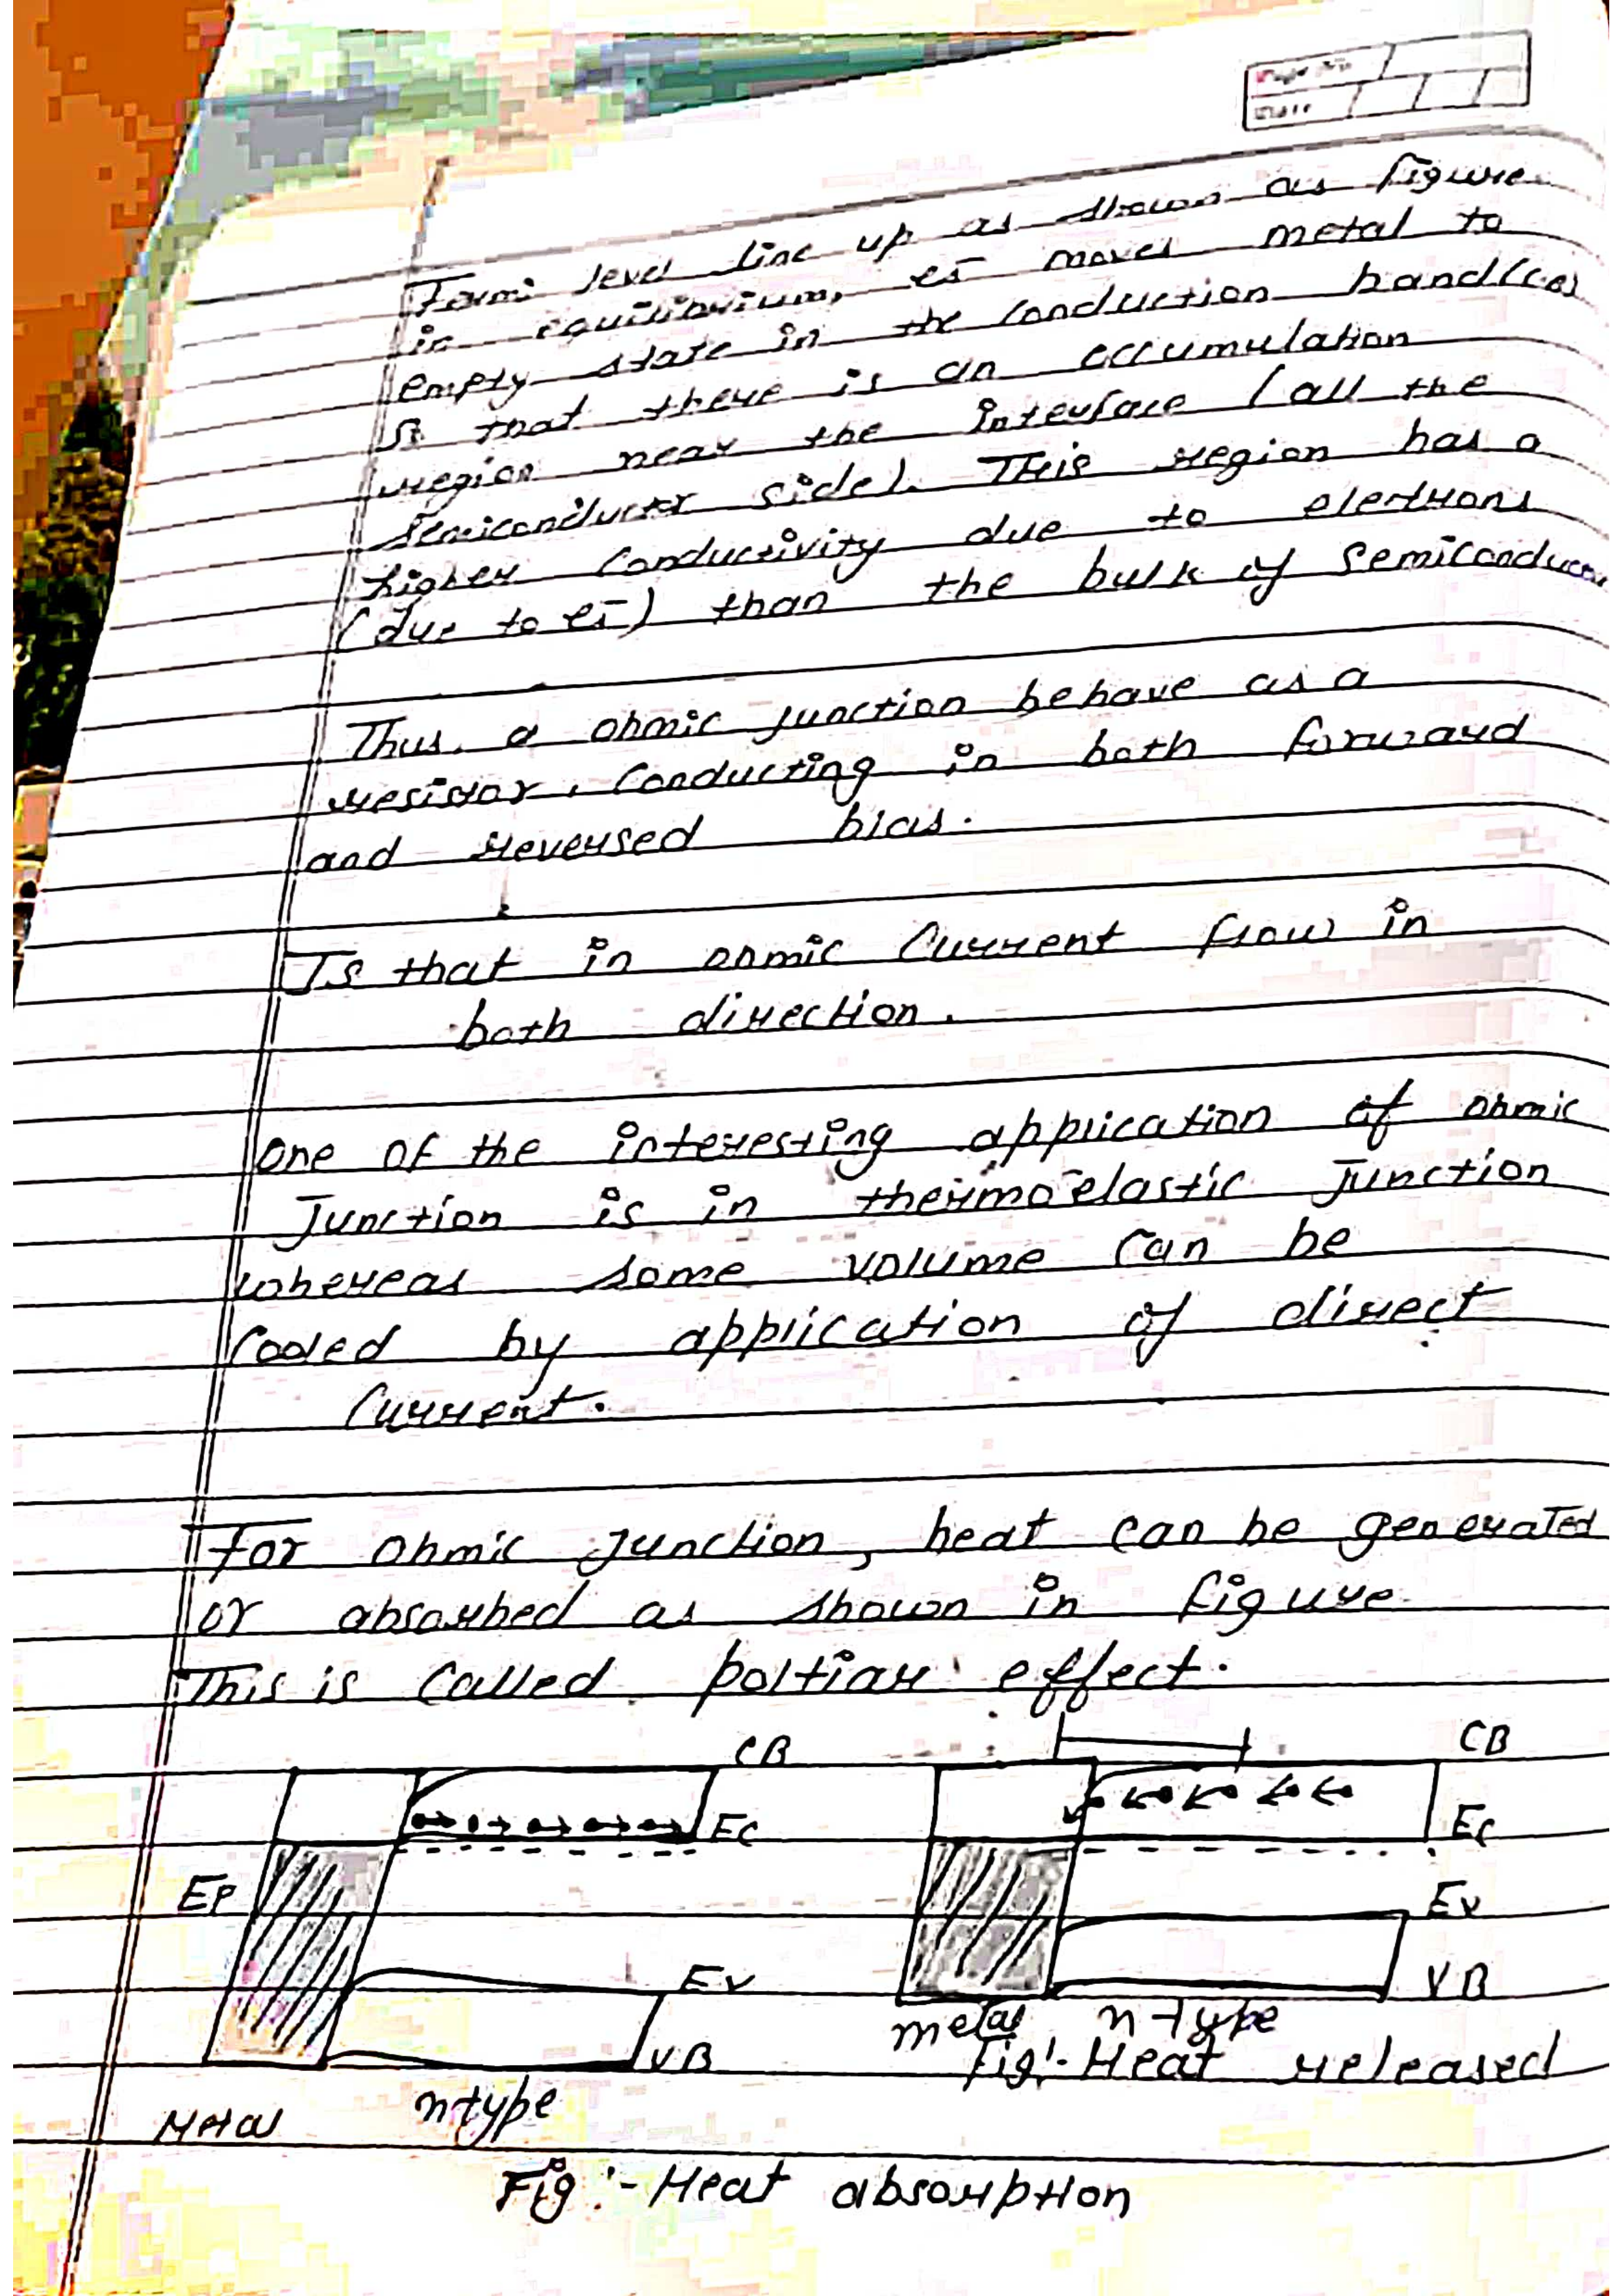 Page No.
Date
Fermi level line up as shown as figure
in equilibrium, es̄ moves metal to
empty state in the conduction band(C.B)
So that there is an accumulation
region near the interface (all the
Semiconductor side). This region has a
higher conductivity due to electrons
(due to es̄) than the bulk of Semiconductor
Thus. a ohmic junction behave as a
resistor, conducting in both forward
and reversed bias.
Is that in ohmic Current flow in
both direction.
One of the interesting application of ohmic
Junction is in thermoelastic Junction
whereas some volume can be
Cooled by application of direct
Current.
For Ohmic Junction, heat can be generated
or absorbed as shown in figure
This is Called poltiar effect.
CB CB
EC EC
EF EV
EV VB
metal n-type
VB Fig:- Heat released
Metal n-type
Fig:- Heat absorption